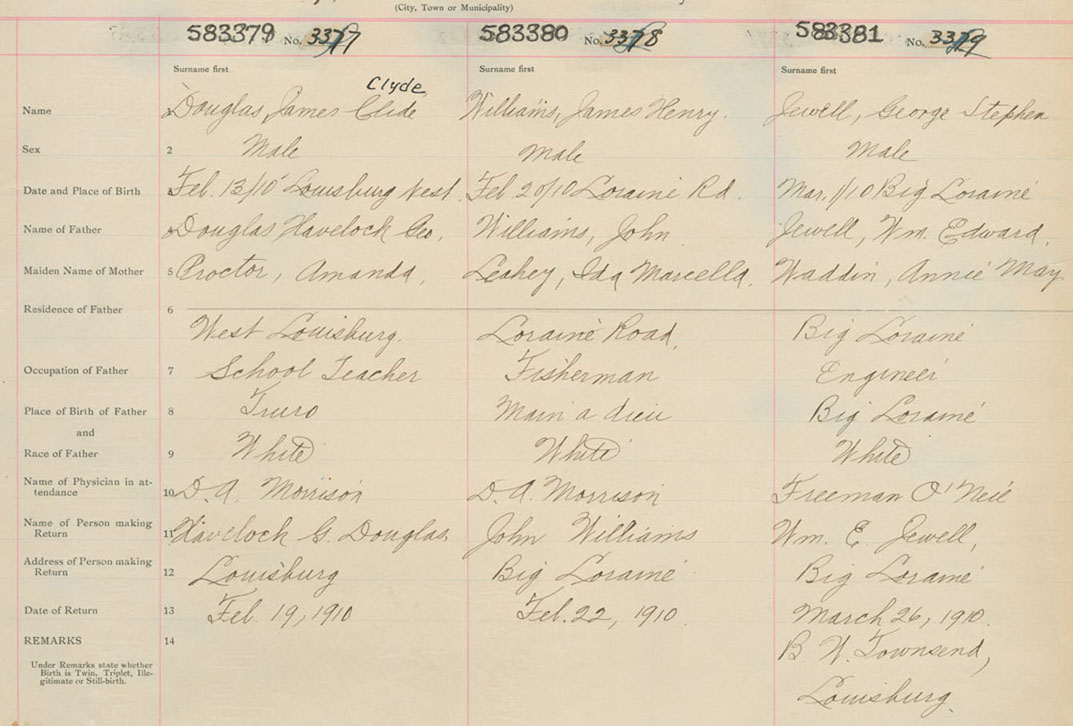 (City, Town or Municipality)
583379 No. 3377 583380 No. 3378 583381 No. 3379
Surname first Surname first Surname first
Clyde
Name 1 Douglas, James Clide Williams, James Henry. Jewell, George Stephen
Sex 2 Male Male Male
Date and Place of Birth Feb. 13/10 Louisburg West. Feb 20/10 Loraine Rd. Mar. 1/10 Big Loraine
Name of Father Douglas Havelock Geo. Williams, John Jewell, Wm. Edward.
Maiden Name of Mother 5 Proctor, Amanda, Leahey, Ida Marcella. Waddin, Annie May
Residence of Father 6
West Louisburg. Loraine Road, Big Loraine
Occupation of Father 7 School Teacher Fisherman Engineer
Place of Birth of Father 8 Truro Main a dieu Big Loraine
and
Race of Father 9 White White White
Name of Physician in at-
tendance 10 D. A. Morrison D. A. Morrison Freeman O'Neil
Name of Person making
Return 11 Havelock G. Douglas John Williams Wm. E. Jewell,
Address of Person making
Return 12 Louisburg Big Loraine Big Loraine
Date of Return 13 Feb. 19, 1910 Feb. 22, 1910 March 26, 1910.
REMARKS 14 B W. Townsend,
Under Remarks state whether
Birth is Twin, Triplet, Ille-
gitimate or Still-birth.
Louisburg